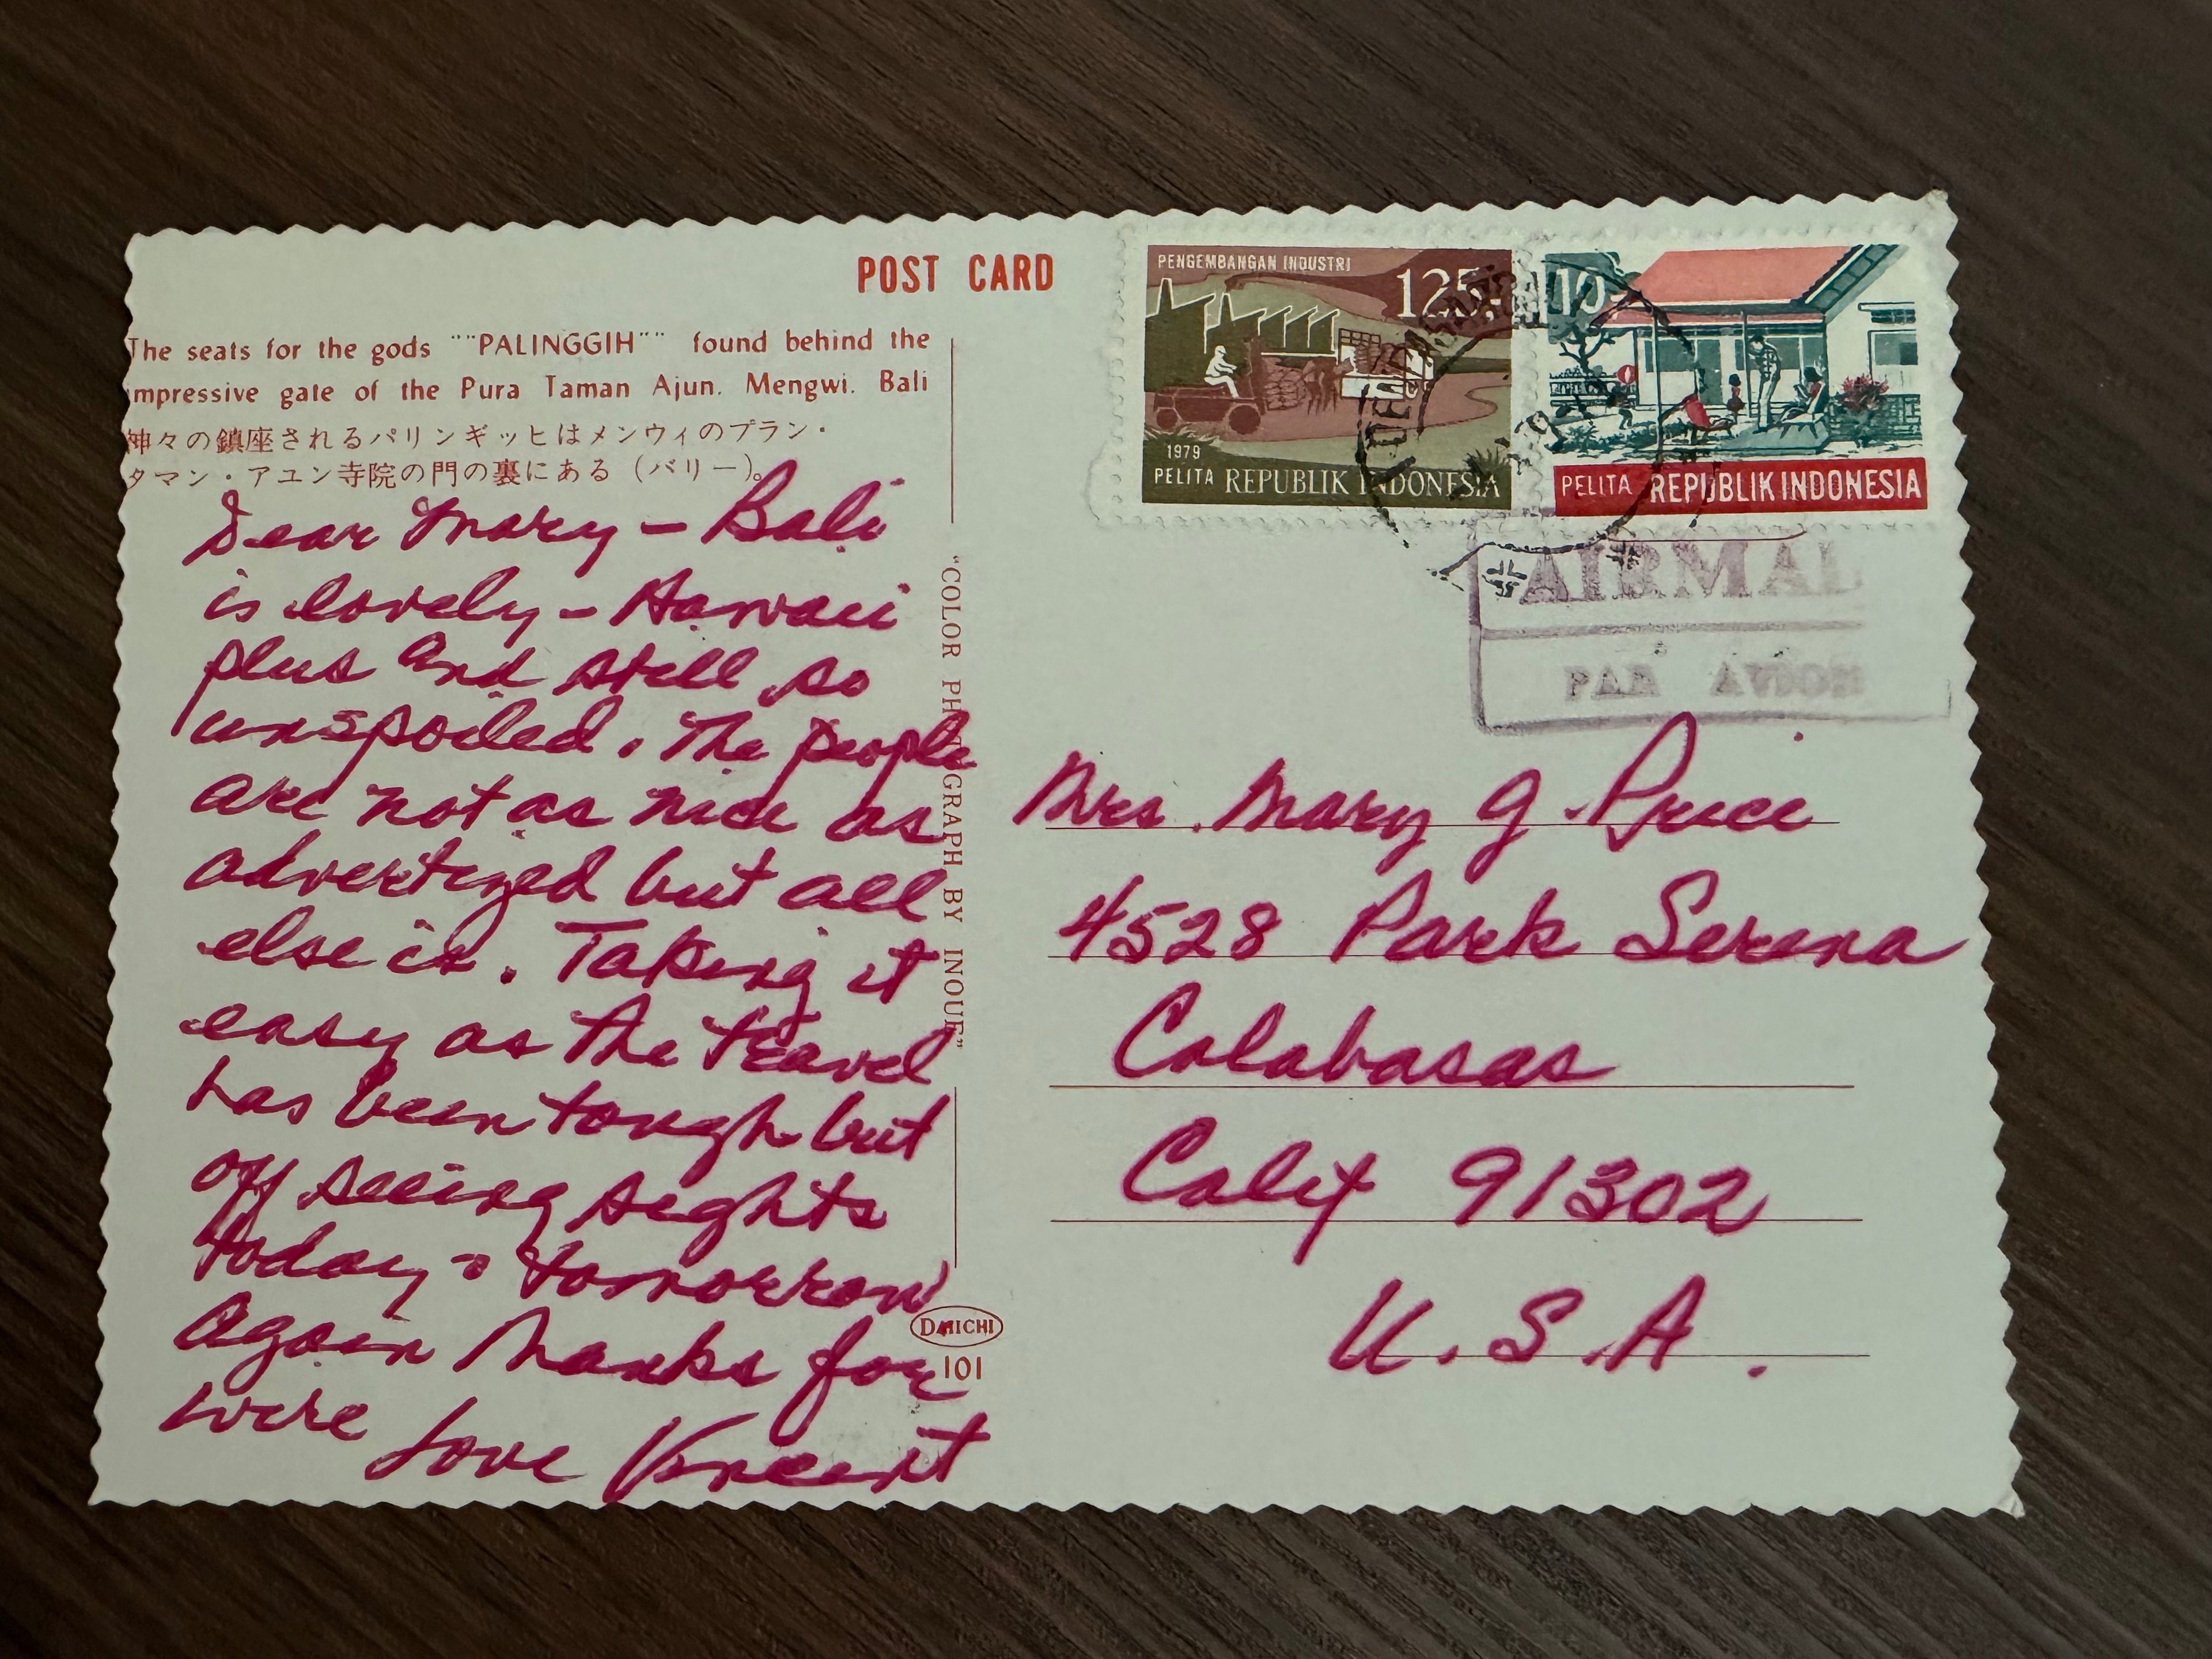 POST CARD
The seats for the gods ""PALINGGIH"" found behind the
impressive gate of the Pura Taman Ajun. Mengwi. Bali
神々の鎮座されるパリンギッヒはメンウィのプラン・
タマン・アユン寺院の門の裏にある（バリー）。
Dear Mary – Bali
is lovely – Hawaii
plus and still so
unspoiled. The people
are not as nice as
advertized but all
else is. Taking it
easy as the travel
has been tough but
off seeing sights
today & tomorrow
Again thanks for
were Love Vincent
"COLOR PHOTOGRAPH BY INOUE"
DAIICHI
101
PENGEMBANGAN INDUSTRI
125.-
1979
PELITA REPUBLIK INDONESIA
10.-
PELITA REPUBLIK INDONESIA
AIRMAIL
PAR AVION
Mrs. Mary G. Price
4528 Park Serena
Calabasas
Calif 91302
U.S.A.